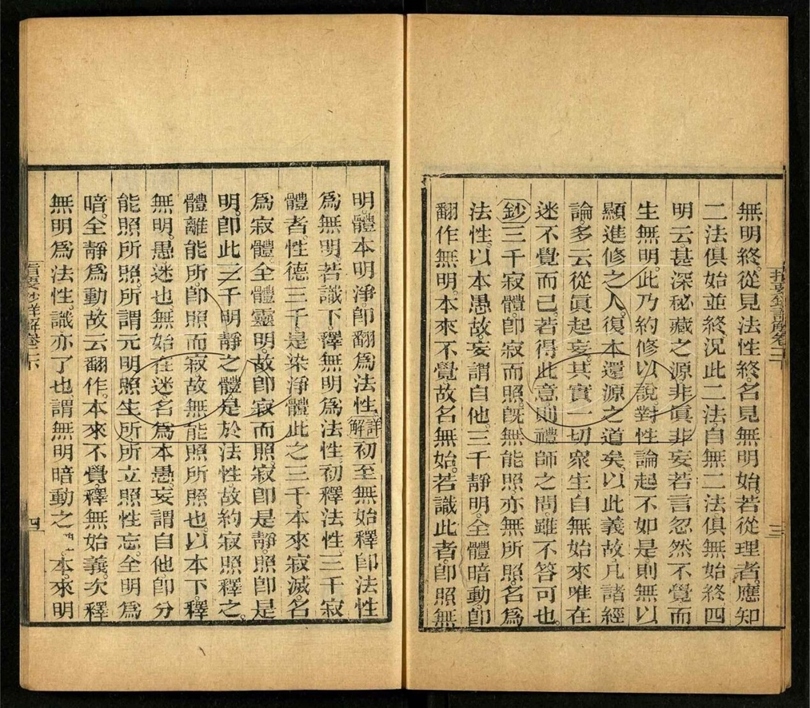 無明終。從見法性終。名見無明始。若從理者。應知
二法俱始並終。況此二法自無二法俱無始終。四
明云甚深秘藏之源。非眞非妄。若言忽然不覺而
生無明。此乃約修以說。對性論起。不如是則無以
顯進修之人。復本還源之道矣。以此義故。凡諸經
論多云從眞起妄。其實一切衆生自無始來。唯在
迷不覺而已。若得此意。則禮師之問雖不答可也。
鈔三千寂體。卽寂而照。旣無能照。亦無所照。名爲
法性。以本愚故。妄謂自他。三千靜明。全體暗動。卽
翻作無明。本來不覺。故名無始。若識此者。卽照無
三
明體本明淨。卽翻爲法性。詳解初至無始。釋卽法性
爲無明。若識下。釋無明爲法性。初釋法性三千寂
體者。性德三千。是染淨體。此之三千。本來寂滅。名
爲寂體。全體靈明。故卽寂而照。寂卽是靜。照卽是
明。卽此三千明靜之體。是於法性。故約寂照釋之。
體離能所。卽照而寂。故無能照所照也。以本下釋
無明。愚迷也。無始在迷。名爲本愚。妄謂自他。卽分
能照所照。所謂元明照生所。所立照性忘。全明爲
暗。全靜爲動。故云翻作。本來不覺。釋無始義。次釋
無明爲法性。識亦了也。謂無明暗動之 本來明
指要鈔詳解卷二下
四